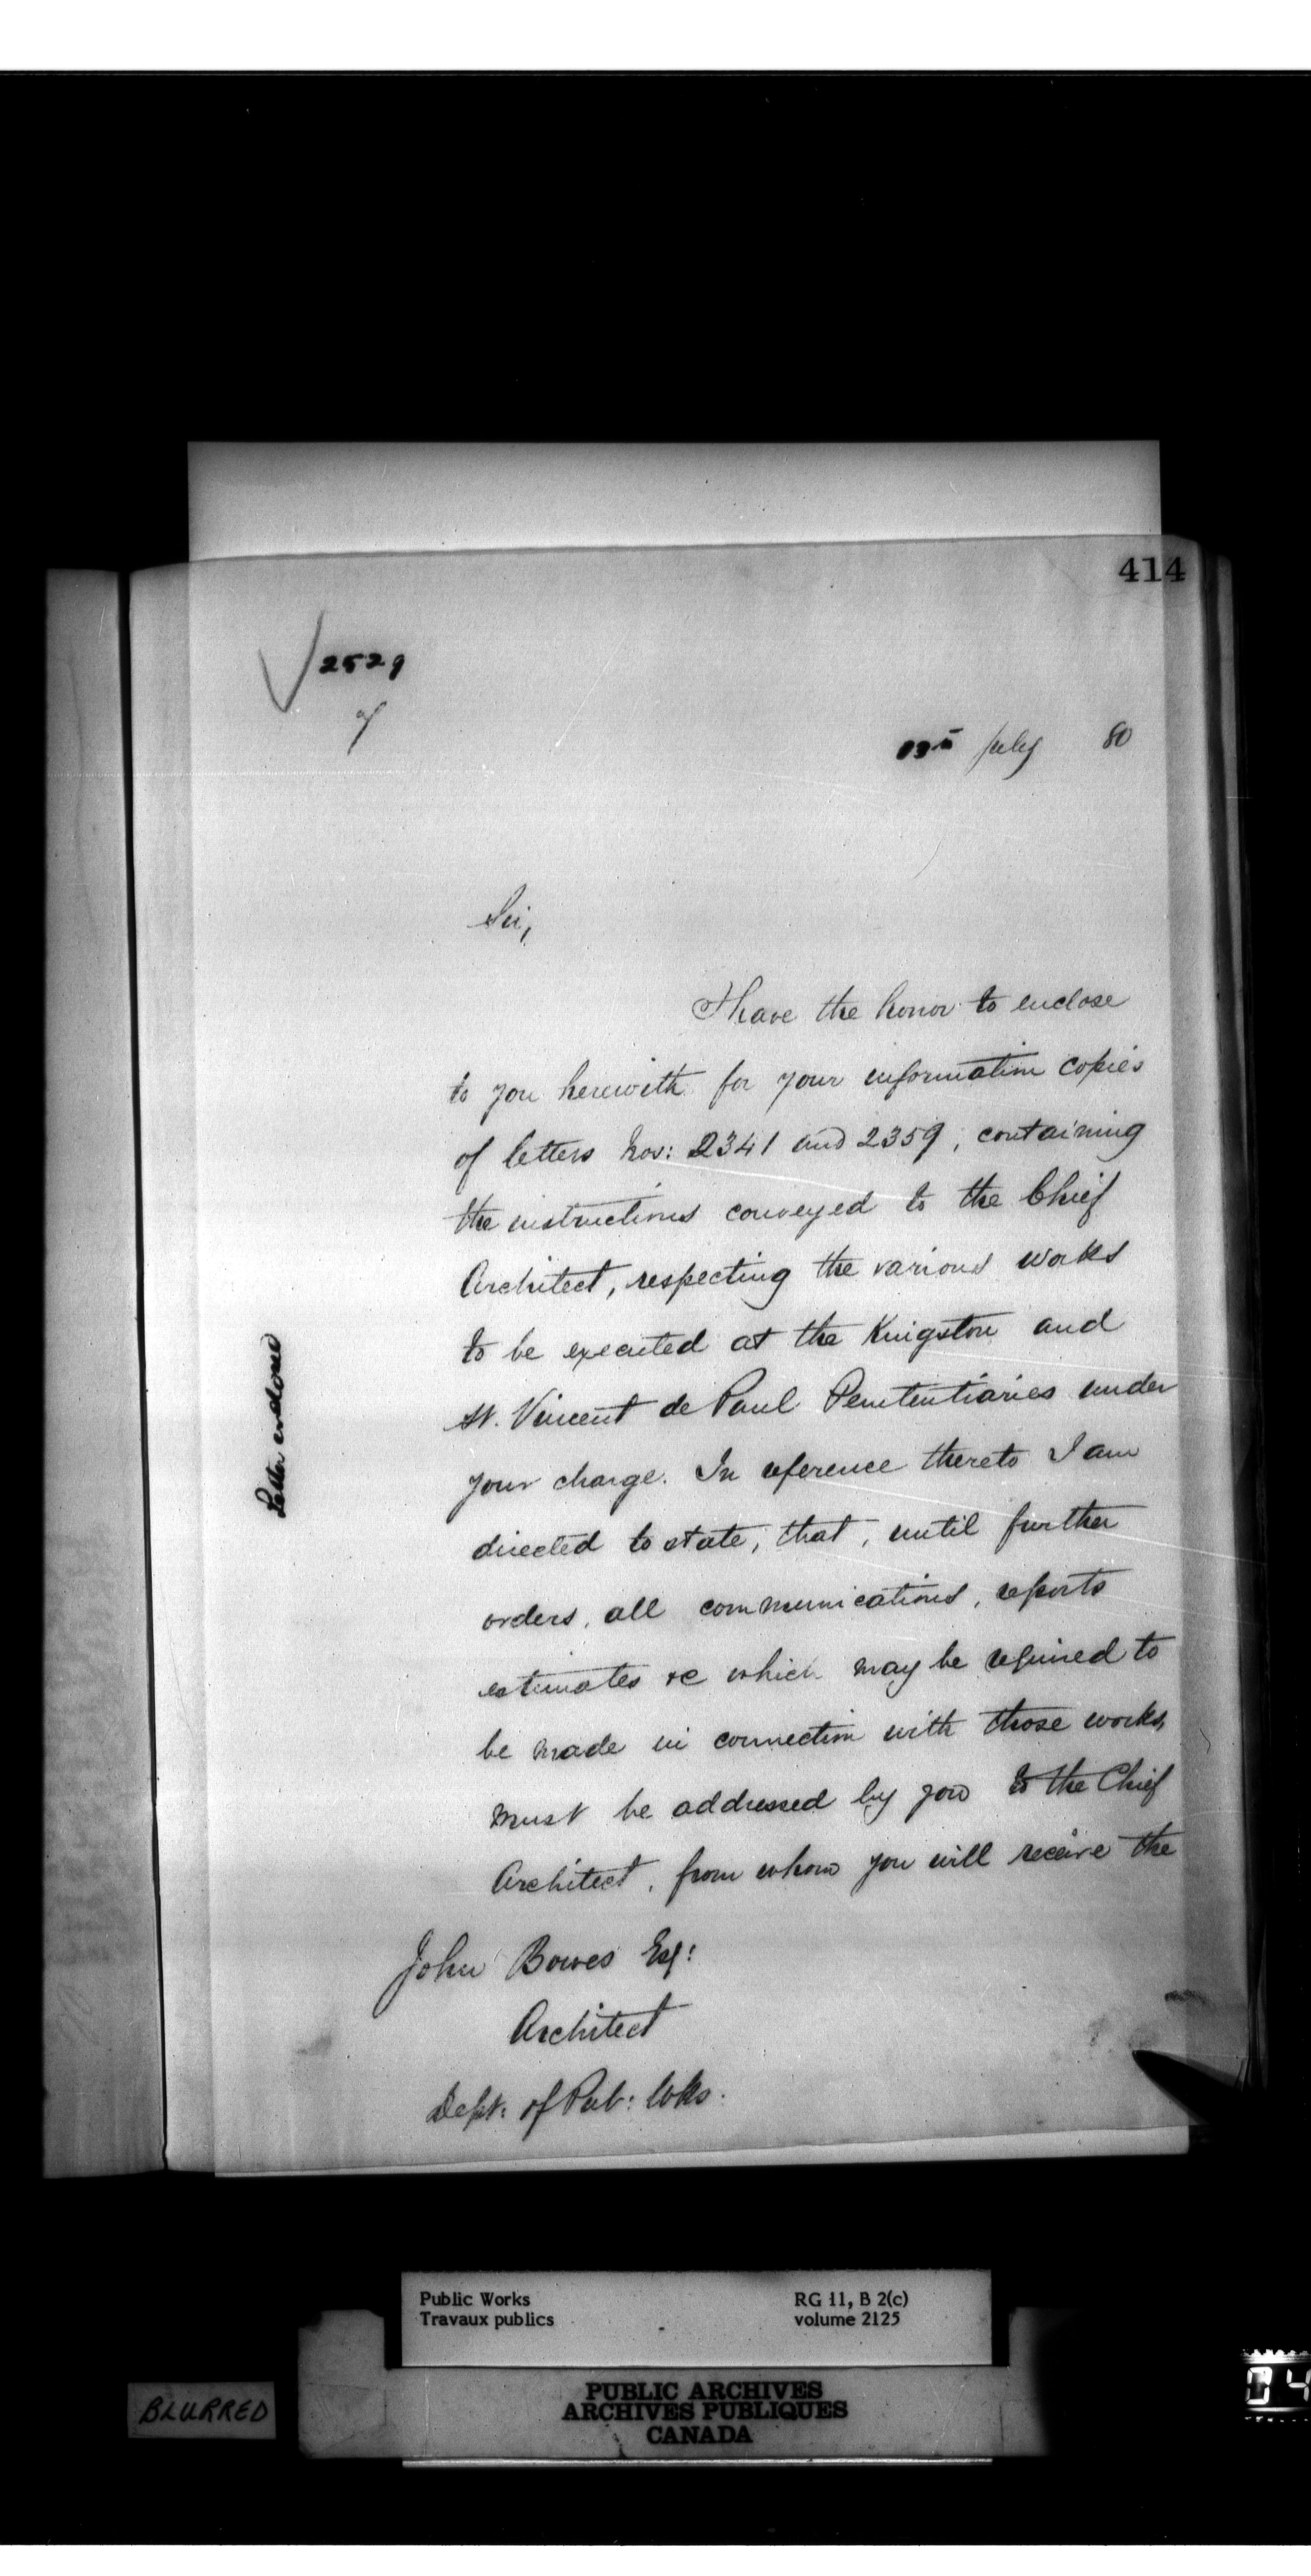 414
2529
July 80
Sir,
I have the honor to enclose
to you herewith for your information copies
of letters Nos: 2341 and 2359, containing
the instructions conveyed to the Chief
Architect, respecting the various works
to be executed at the Kingston and
St. Vincent de Paul Penitentiaries under
your charge. In reference thereto I am
directed to state, that, until further
orders, all communications, reports
estimates &c which may be required to
be made in connection with those works,
must be addressed by you to the Chief
Architect, from whom you will receive the
John Bowes Esq:
Architect
Dept: of Pub: Wks.
Letter enclosed
Public Works
Travaux publics
RG 11, B 2(c)
volume 2125
BLURRED
PUBLIC ARCHIVES
ARCHIVES PUBLIQUES
CANADA
04